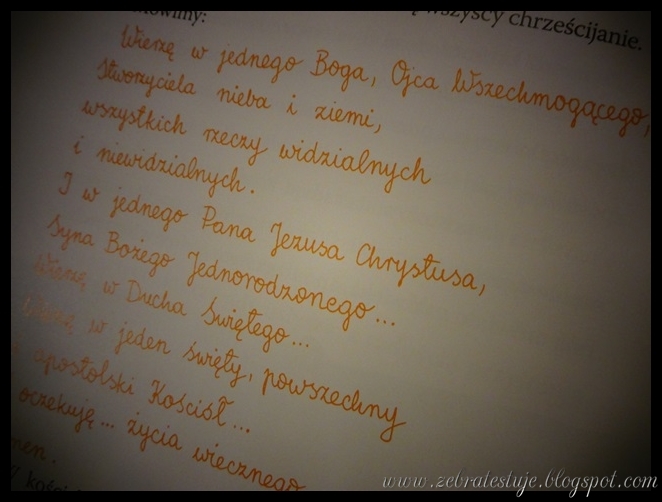 wszyscy chrześcijanie.
Wierzę w jednego Boga, Ojca Wszechmogącego,
Stworzyciela nieba i ziemi,
wszystkich rzeczy widzialnych
i niewidzialnych.
I w jednego Pana Jezusa Chrystusa,
Syna Bożego Jednorodzonego...
Wierzę w Ducha Świętego...
Wierzę w jeden święty, powszechny
apostolski Kościół...
oczekuję... życia wiecznego
www.zebratestuje.blogspot.com